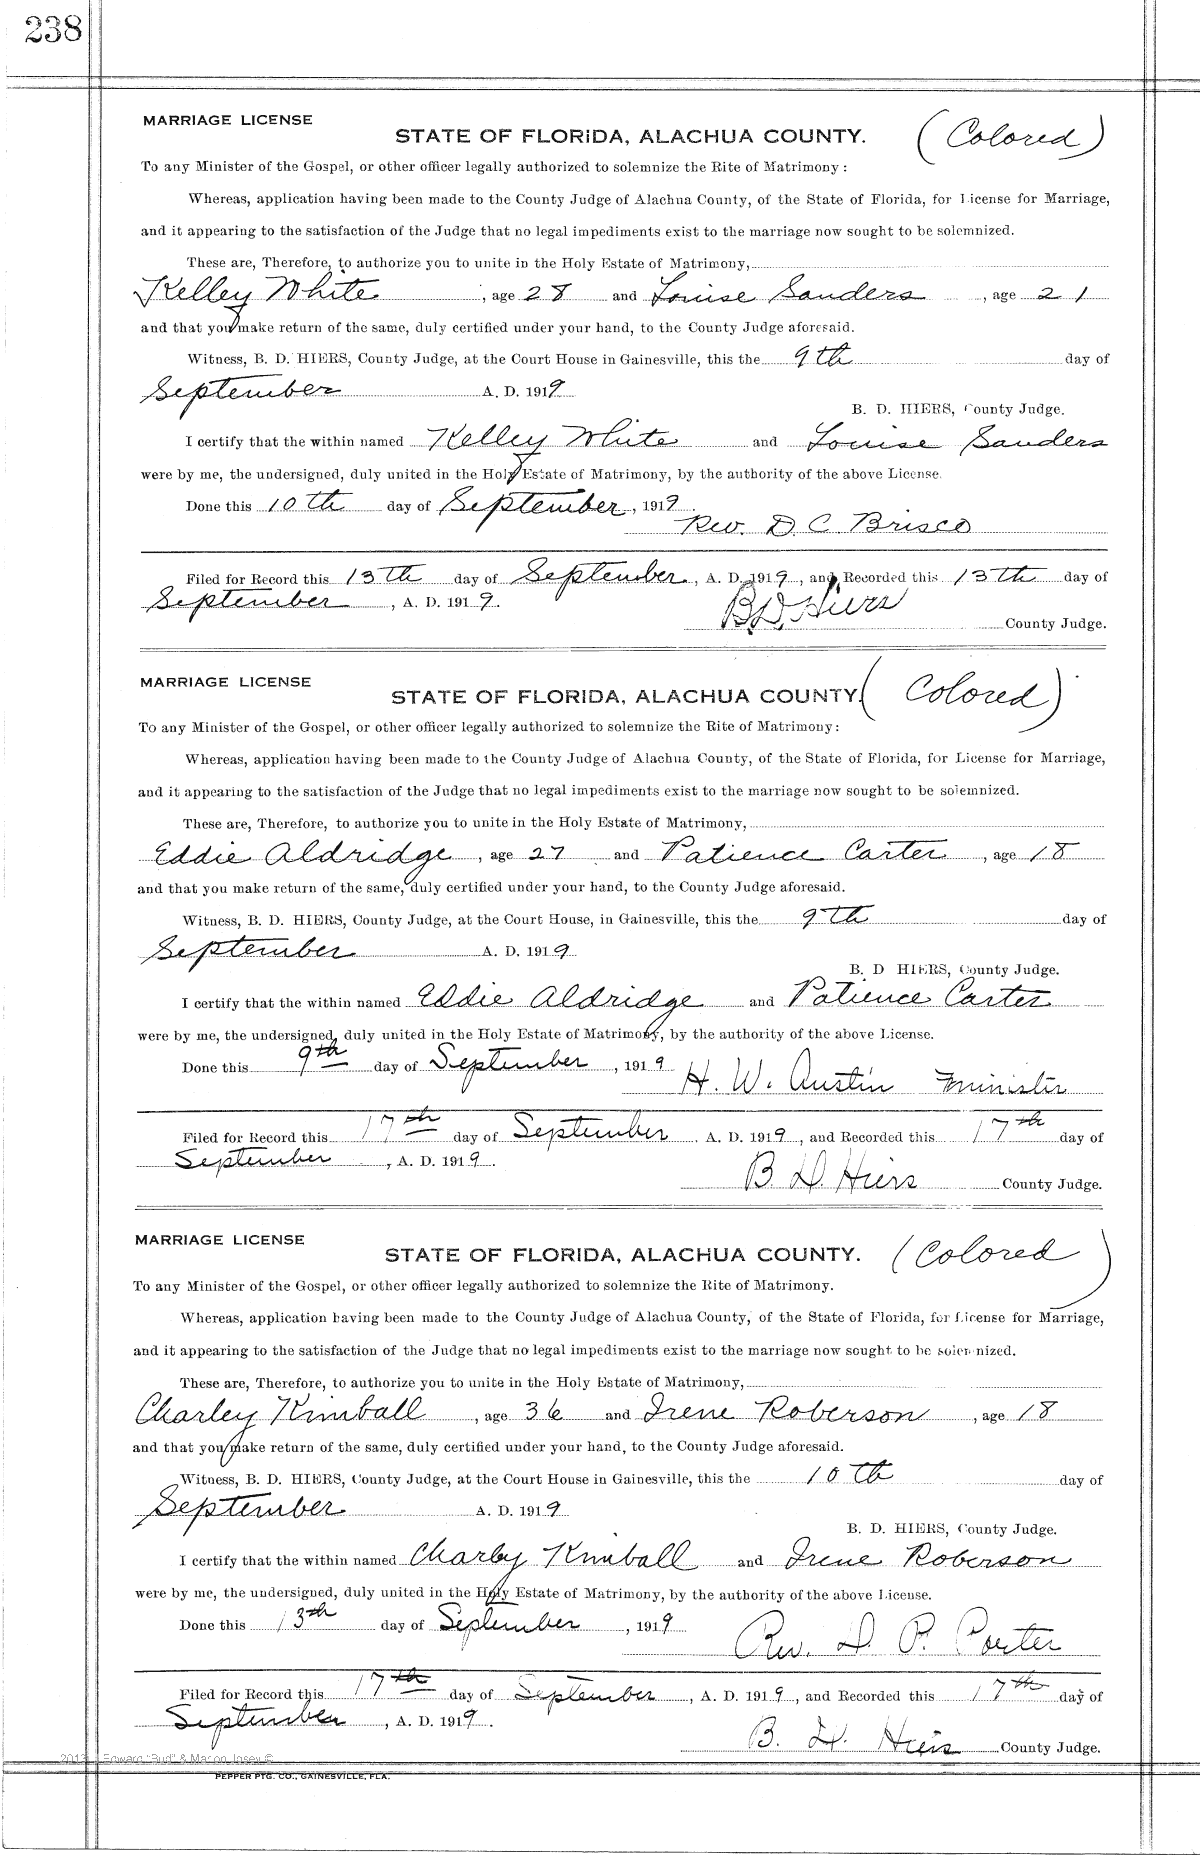 238
MARRIAGE LICENSE
STATE OF FLORIDA, ALACHUA COUNTY. (Colored)
To any Minister of the Gospel, or other officer legally authorized to solemnize the Rite of Matrimony:
Whereas, application having been made to the County Judge of Alachua County, of the State of Florida, for License for Marriage,
and it appearing to the satisfaction of the Judge that no legal impediments exist to the marriage now sought to be solemnized.
These are, Therefore, to authorize you to unite in the Holy Estate of Matrimony,
Kelley White, age 28 and Louise Sanders, age 21
and that you make return of the same, duly certified under your hand, to the County Judge aforesaid.
Witness, B. D. HIERS, County Judge, at the Court House in Gainesville, this the 9th day of
September A. D. 1919
B. D. HIERS, County Judge.
I certify that the within named Kelley White and Louise Sanders
were by me, the undersigned, duly united in the Holy Estate of Matrimony, by the authority of the above License.
Done this 10th day of September, 1919.
Rev. D. C. Brisco
Filed for Record this 13th day of September, A. D. 1919, and Recorded this 13th day of
September, A. D. 1919.
B. D. Hiers County Judge.
MARRIAGE LICENSE
STATE OF FLORIDA, ALACHUA COUNTY. (Colored)
To any Minister of the Gospel, or other officer legally authorized to solemnize the Rite of Matrimony:
Whereas, application having been made to the County Judge of Alachua County, of the State of Florida, for License for Marriage,
and it appearing to the satisfaction of the Judge that no legal impediments exist to the marriage now sought to be solemnized.
These are, Therefore, to authorize you to unite in the Holy Estate of Matrimony,
Eddie Aldridge, age 27 and Patience Carter, age 18
and that you make return of the same, duly certified under your hand, to the County Judge aforesaid.
Witness, B. D. HIERS, County Judge, at the Court House, in Gainesville, this the 9th day of
September A. D. 1919
B. D HIERS, County Judge.
I certify that the within named Eddie Aldridge and Patience Carter
were by me, the undersigned, duly united in the Holy Estate of Matrimony, by the authority of the above License.
Done this 9th day of September, 1919
H. W. Austin Minister
Filed for Record this 17th day of September, A. D. 1919, and Recorded this 17th day of
September, A. D. 1919.
B. D. Hiers County Judge.
MARRIAGE LICENSE
STATE OF FLORIDA, ALACHUA COUNTY. (Colored)
To any Minister of the Gospel, or other officer legally authorized to solemnize the Rite of Matrimony.
Whereas, application having been made to the County Judge of Alachua County, of the State of Florida, for License for Marriage,
and it appearing to the satisfaction of the Judge that no legal impediments exist to the marriage now sought to be solemnized.
These are, Therefore, to authorize you to unite in the Holy Estate of Matrimony,
Charley Kimball, age 36 and Irene Roberson, age 18
and that you make return of the same, duly certified under your hand, to the County Judge aforesaid.
Witness, B. D. HIERS, County Judge, at the Court House in Gainesville, this the 10th day of
September A. D. 1919
B. D. HIERS, County Judge.
I certify that the within named Charley Kimball and Irene Roberson
were by me, the undersigned, duly united in the Holy Estate of Matrimony, by the authority of the above License.
Done this 13th day of September, 1919
Rev. D. P. Porter
Filed for Record this 17th day of September, A. D. 1919, and Recorded this 17th day of
September, A. D. 1919.
B. D. Hiers County Judge.
2013 Edward "Bud" & Marion Josey ©
PEPPER PTG. CO., GAINESVILLE, FLA.